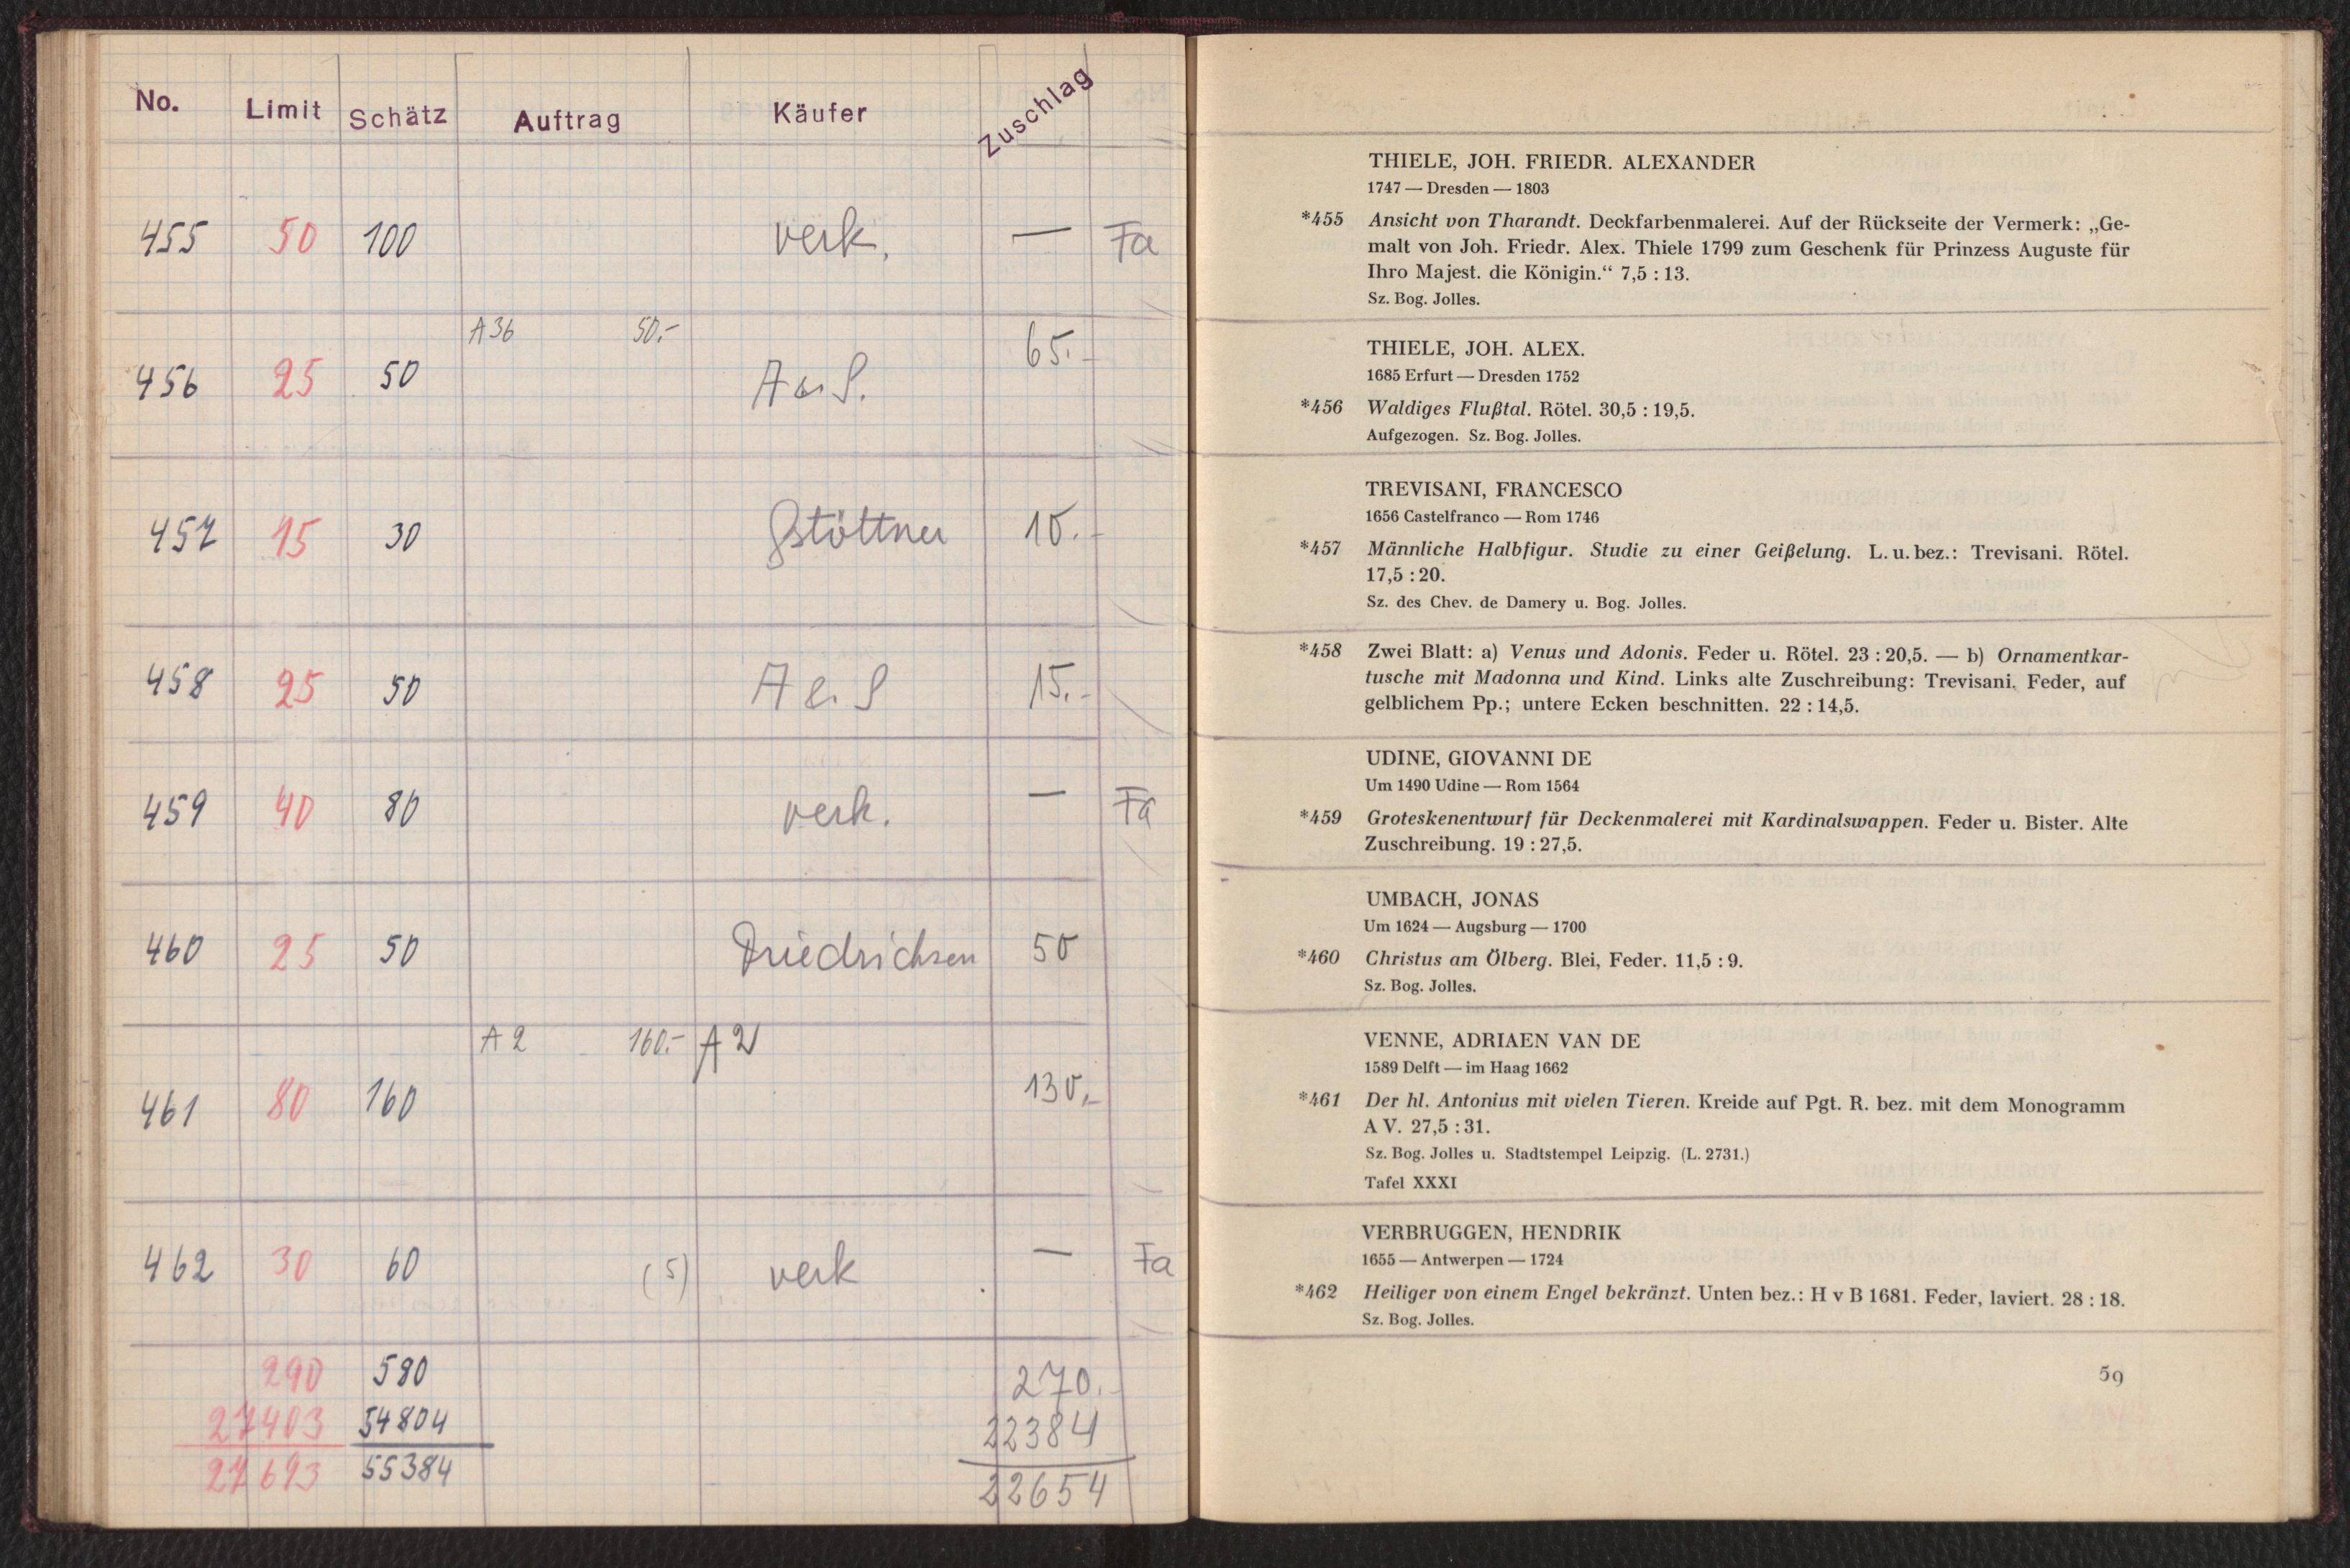 No. Limit Schätz Auftrag Käufer Zuschlag
455 50 100 verk. — Fa
A 36 50.-
456 25 50 65.-
457 15 30 Gstöttner 10.-
458 25 50 15.-
459 40 80 verk. — Fa
460 25 50 Driedrichsen 50
A 2 160.- A 2
461 80 160 130.-
462 30 60 (5) verk — Fa
290 580 270.-
27403 54804 22384
27693 55384 22654
THIELE, JOH. FRIEDR. ALEXANDER
1747 — Dresden — 1803
*455 Ansicht von Tharandt. Deckfarbenmalerei. Auf der Rückseite der Vermerk: „Ge-
malt von Joh. Friedr. Alex. Thiele 1799 zum Geschenk für Prinzess Auguste für
Ihro Majest. die Königin.“ 7,5 : 13.
Sz. Bog. Jolles.
THIELE, JOH. ALEX.
1685 Erfurt — Dresden 1752
*456 Waldiges Flußtal. Rötel. 30,5 : 19,5.
Aufgezogen. Sz. Bog. Jolles.
TREVISANI, FRANCESCO
1656 Castelfranco — Rom 1746
*457 Männliche Halbfigur. Studie zu einer Geißelung. L. u. bez.: Trevisani. Rötel.
17,5 : 20.
Sz. des Chev. de Damery u. Bog. Jolles.
*458 Zwei Blatt: a) Venus und Adonis. Feder u. Rötel. 23 : 20,5. — b) Ornamentkar-
tusche mit Madonna und Kind. Links alte Zuschreibung: Trevisani. Feder, auf
gelblichem Pp.; untere Ecken beschnitten. 22 : 14,5.
UDINE, GIOVANNI DE
Um 1490 Udine — Rom 1564
*459 Groteskenentwurf für Deckenmalerei mit Kardinalswappen. Feder u. Bister. Alte
Zuschreibung. 19 : 27,5.
UMBACH, JONAS
Um 1624 — Augsburg — 1700
*460 Christus am Ölberg. Blei, Feder. 11,5 : 9.
Sz. Bog. Jolles.
VENNE, ADRIAEN VAN DE
1589 Delft — im Haag 1662
*461 Der hl. Antonius mit vielen Tieren. Kreide auf Pgt. R. bez. mit dem Monogramm
A V. 27,5 : 31.
Sz. Bog. Jolles u. Stadtstempel Leipzig. (L. 2731.)
Tafel XXXI
VERBRUGGEN, HENDRIK
1655 — Antwerpen — 1724
*462 Heiliger von einem Engel bekränzt. Unten bez.: H v B 1681. Feder, laviert. 28 : 18.
Sz. Bog. Jolles.
59